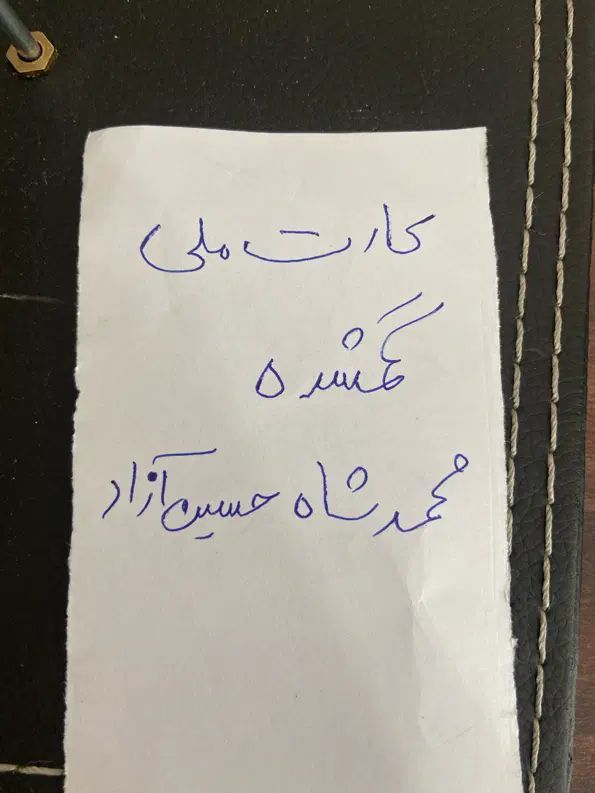 کارت ملی
گمشده
محمد شاه حسین آزاد